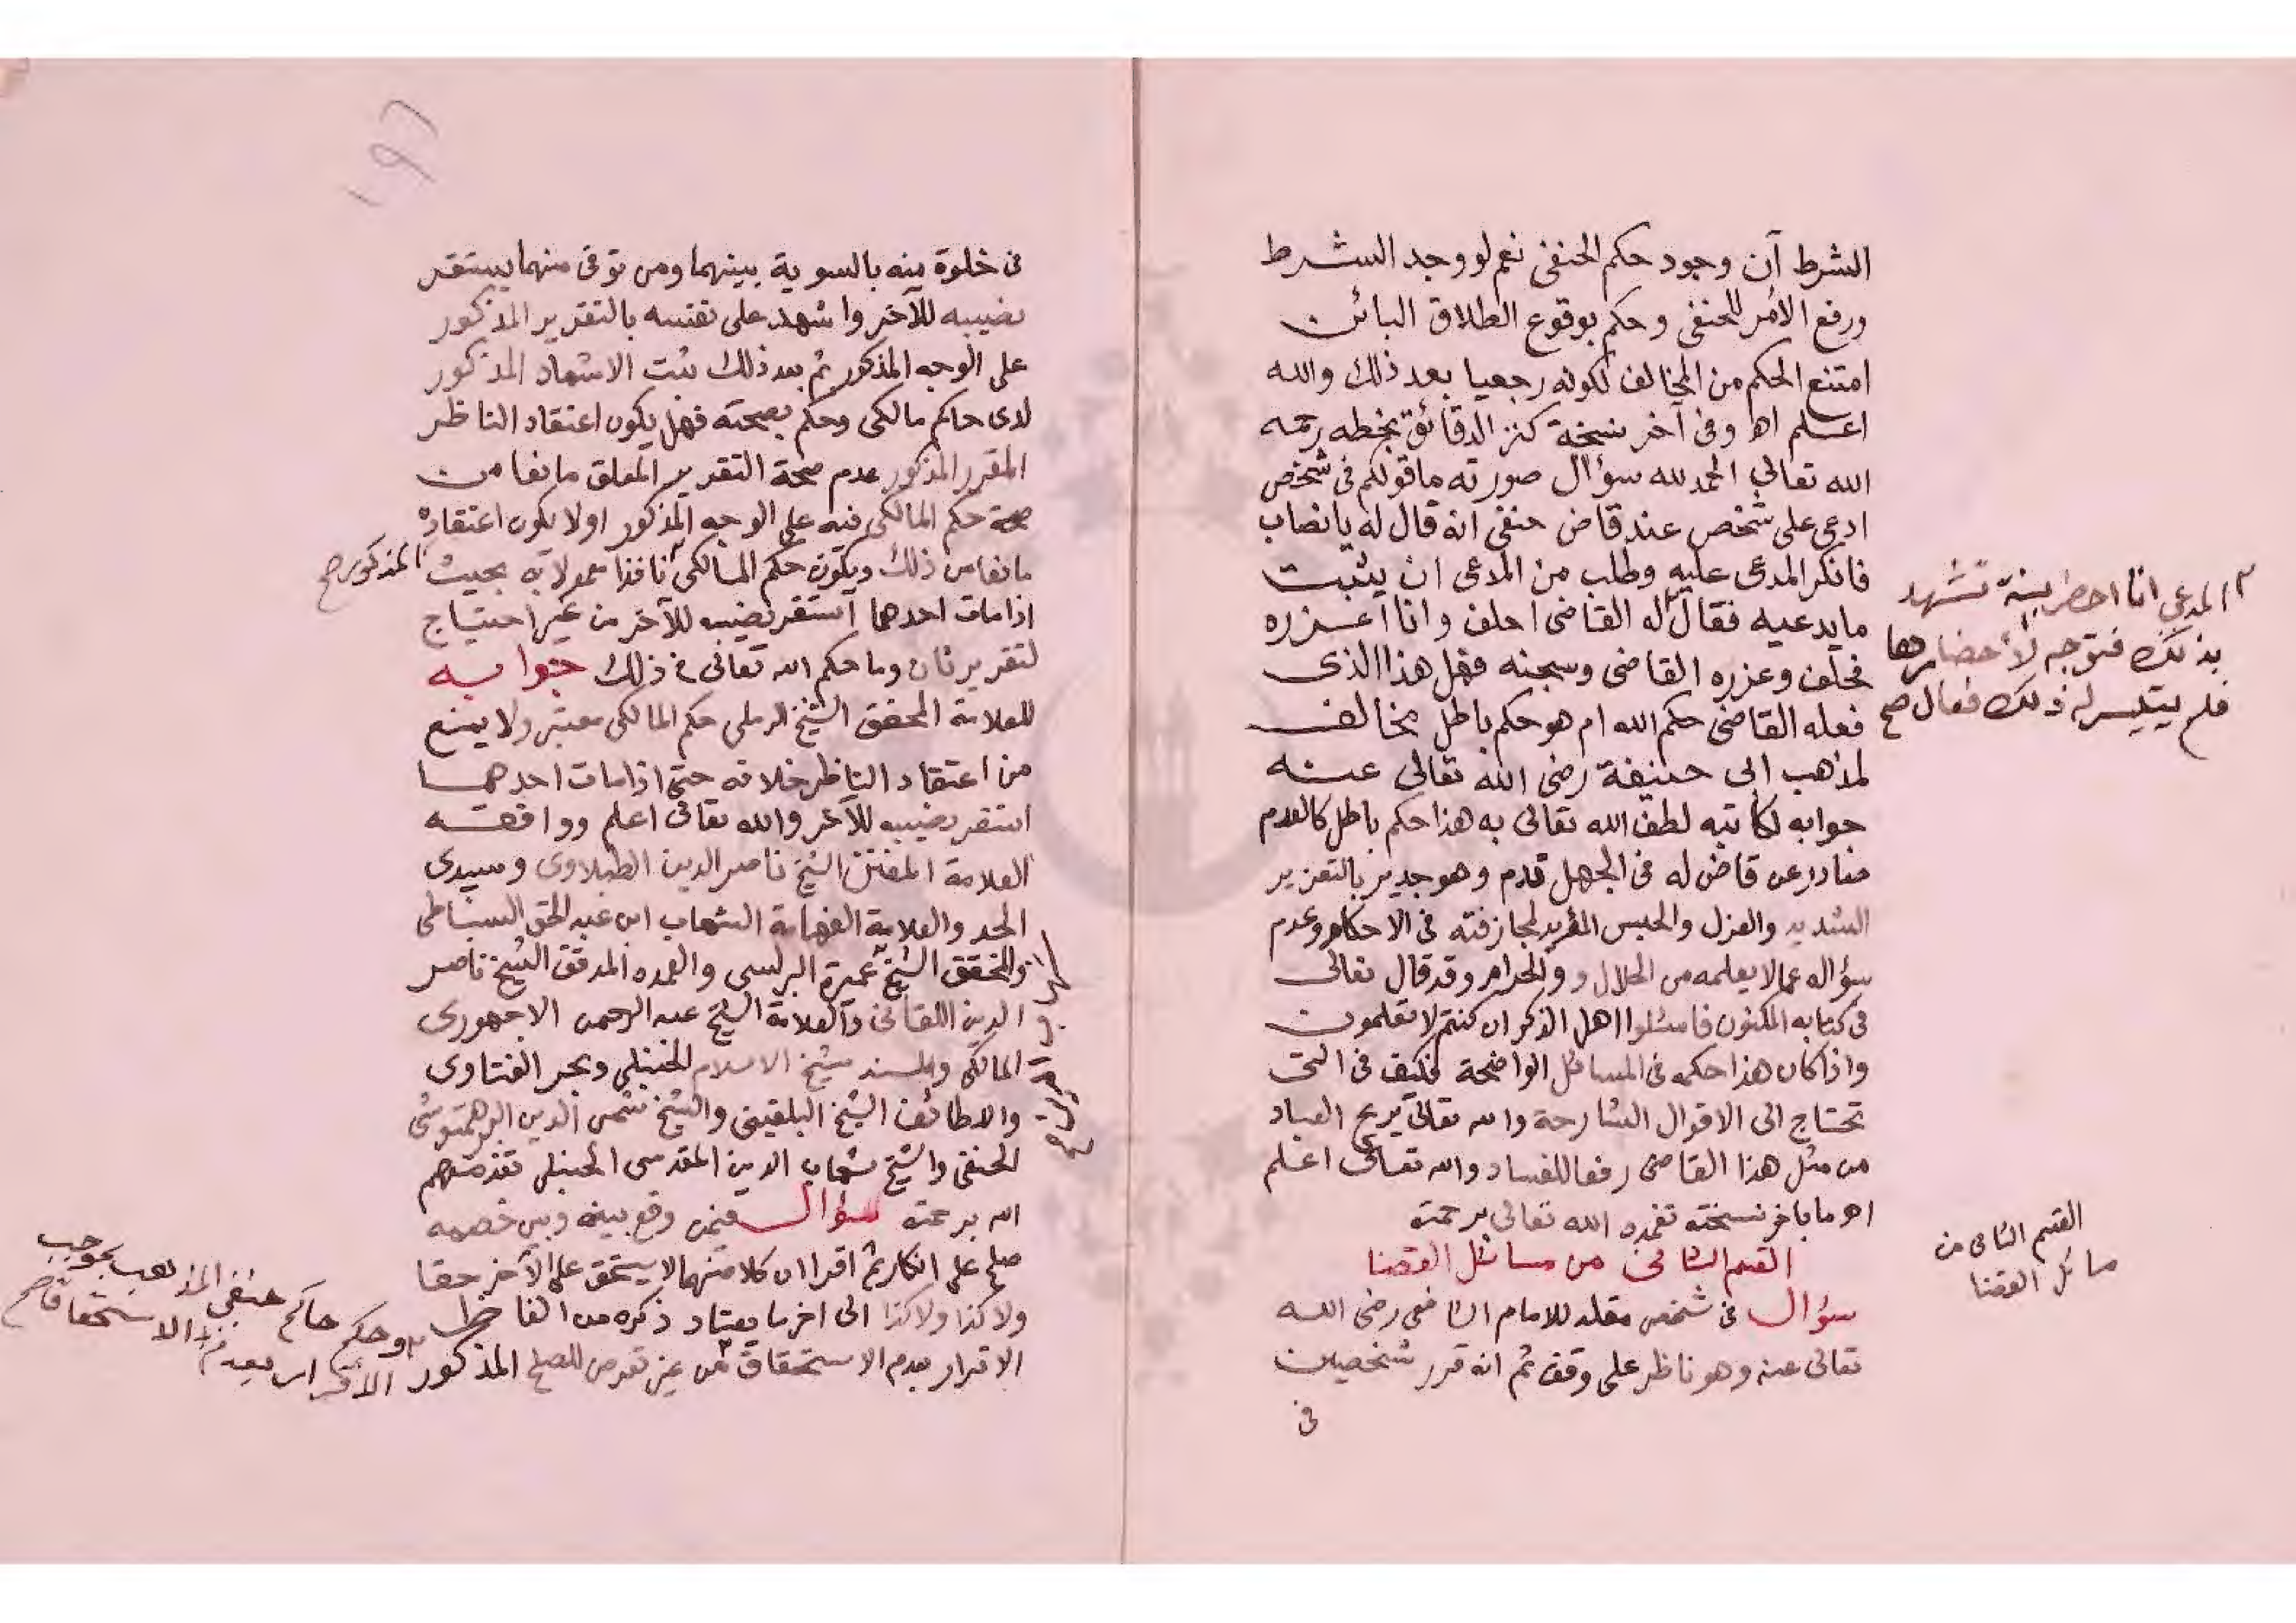 الشرط آن وجود حكم الحنفى نعم لو وجد الشرط
ورفع الأمر للحنفى وحكم بوقوع الطلاق البائن
امتنع الحكم من المخالف لكونه رجعيا بعد ذلك والله
اعلم اه وفى آخر نسخة كنز الدقائق بخطه رحمه
الله تعالى الحمد لله سؤال صورته ما قولكم فى شخص
ادعى على شخص عند قاض حنفى انه قال له يا نصاب
فانكر المدعى عليه وطلب من المدعى ان يثبت
ما يدعيه فقال له القاضى احلف وانا اعزره
فحلف وعزره القاضى وسجنه فهل هذا الذى
فعله القاضى حكم الله ام هو حكم باطل مخالف
لمذهب ابى حنيفة رضى الله تعالى عنه
جوابه لكاتبه لطف الله تعالى به هذا حكم باطل كالعدم
صادر عن قاض له فى الجهل قدم وهو جدير بالتعزير
الشديد والعزل والحبس المزيد لمجازفته فى الاحكام وعدم
سؤاله عما لا يعلمه من الحلال و والحرام وقد قال تعالى
فى كتابه المكنون فاسئلوا اهل الذكر ان كنتم لا تعلمون
واذا كان هذا حكمه فى المسائل الواضحة فكيف فى التى
تحتاج الى الاقوال الشارحة والله تعالى يريح العباد
من مثل هذا القاضى رفعا للفساد والله تعالى اعلم
اه ما بآخر نسخته تغمده الله تعالى برحمته
القسم الثانى من مسائل القضا
سؤال فى شخص مقلد للامام الشافعى رضى الله
تعالى عنه وهو ناظر على وقف ثم انه قرر شخصين
فى
المدعى انا احضر بينة تشهد
بذلك فتوجه لأحضارها
فلم يتيسر له ذلك فقال صح
القسم الثانى من
مسائل القضا
١٩٦
فى خلوة منه بالسوية بينهما ومن توفى منهما يستقر
نصيبه للآخر واشهد على نفسه بالتقرير المذكور
على الوجه المذكور ثم بعد ذلك ثبت الاشهاد المذكور
لدى حاكم مالكى وحكم بصحته فهل يكون اعتقاد الناظر
المقرر المذكور عدم صحة التقرير المعلق مانعا من
صحة حكم المالكى فيه على الوجه المذكور او لا يكون اعتقاده
مانعا من ذلك ويكون حكم المالكى نافذا معمولا به بحيث
المذكور صح
اذا مات احدهما استقر نصيبه للآخر من غير احتياج
لتقرير ثان وما حكم الله تعالى فى ذلك جوابه
للعلامة المحقق الشيخ الرملى حكم المالكى معتبر ولا يمنع
من اعتقاد الناظر خلافه حتى اذا مات احدهما
استقر نصيبه للآخر والله تعالى اعلم ووافقه
العلامة المفنن الشيخ ناصر الدين الطبلاوى وسيدى
الجد والعلامة الفهامة الشهاب ابن عبد الحق السنباطى
والمحقق الشيخ عميرة البرلسى والعمده المدقق الشيخ ناصر
الدين اللقانى والعلامة الشيخ عبد الرحمن الاجهورى
المالكى والمسند شيخ الاسلام الحنبلى وبحر الفتاوى
والاطائف الشيخ البلقينى والشيخ شمس الدين البرهمتوشى
الحنفى والشيخ شهاب الدين المقدسى الحنبلى تغمدهم
الله برحمته سؤال فيمن وقع بينه وبين خصمه
صلح على انكار ثم اقرا ان كلا منهما لا يستحق على الآخر حقا
ولا كذا ولا كذا الى اخر ما يعتاد ذكره من الفاظ
الاقرار بعدم الاستحقاق من غير تعرض للصلح المذكور
وحكم حاكم حنفى المذهب بموجب
الأقرار بعدم الاستحقاق صح